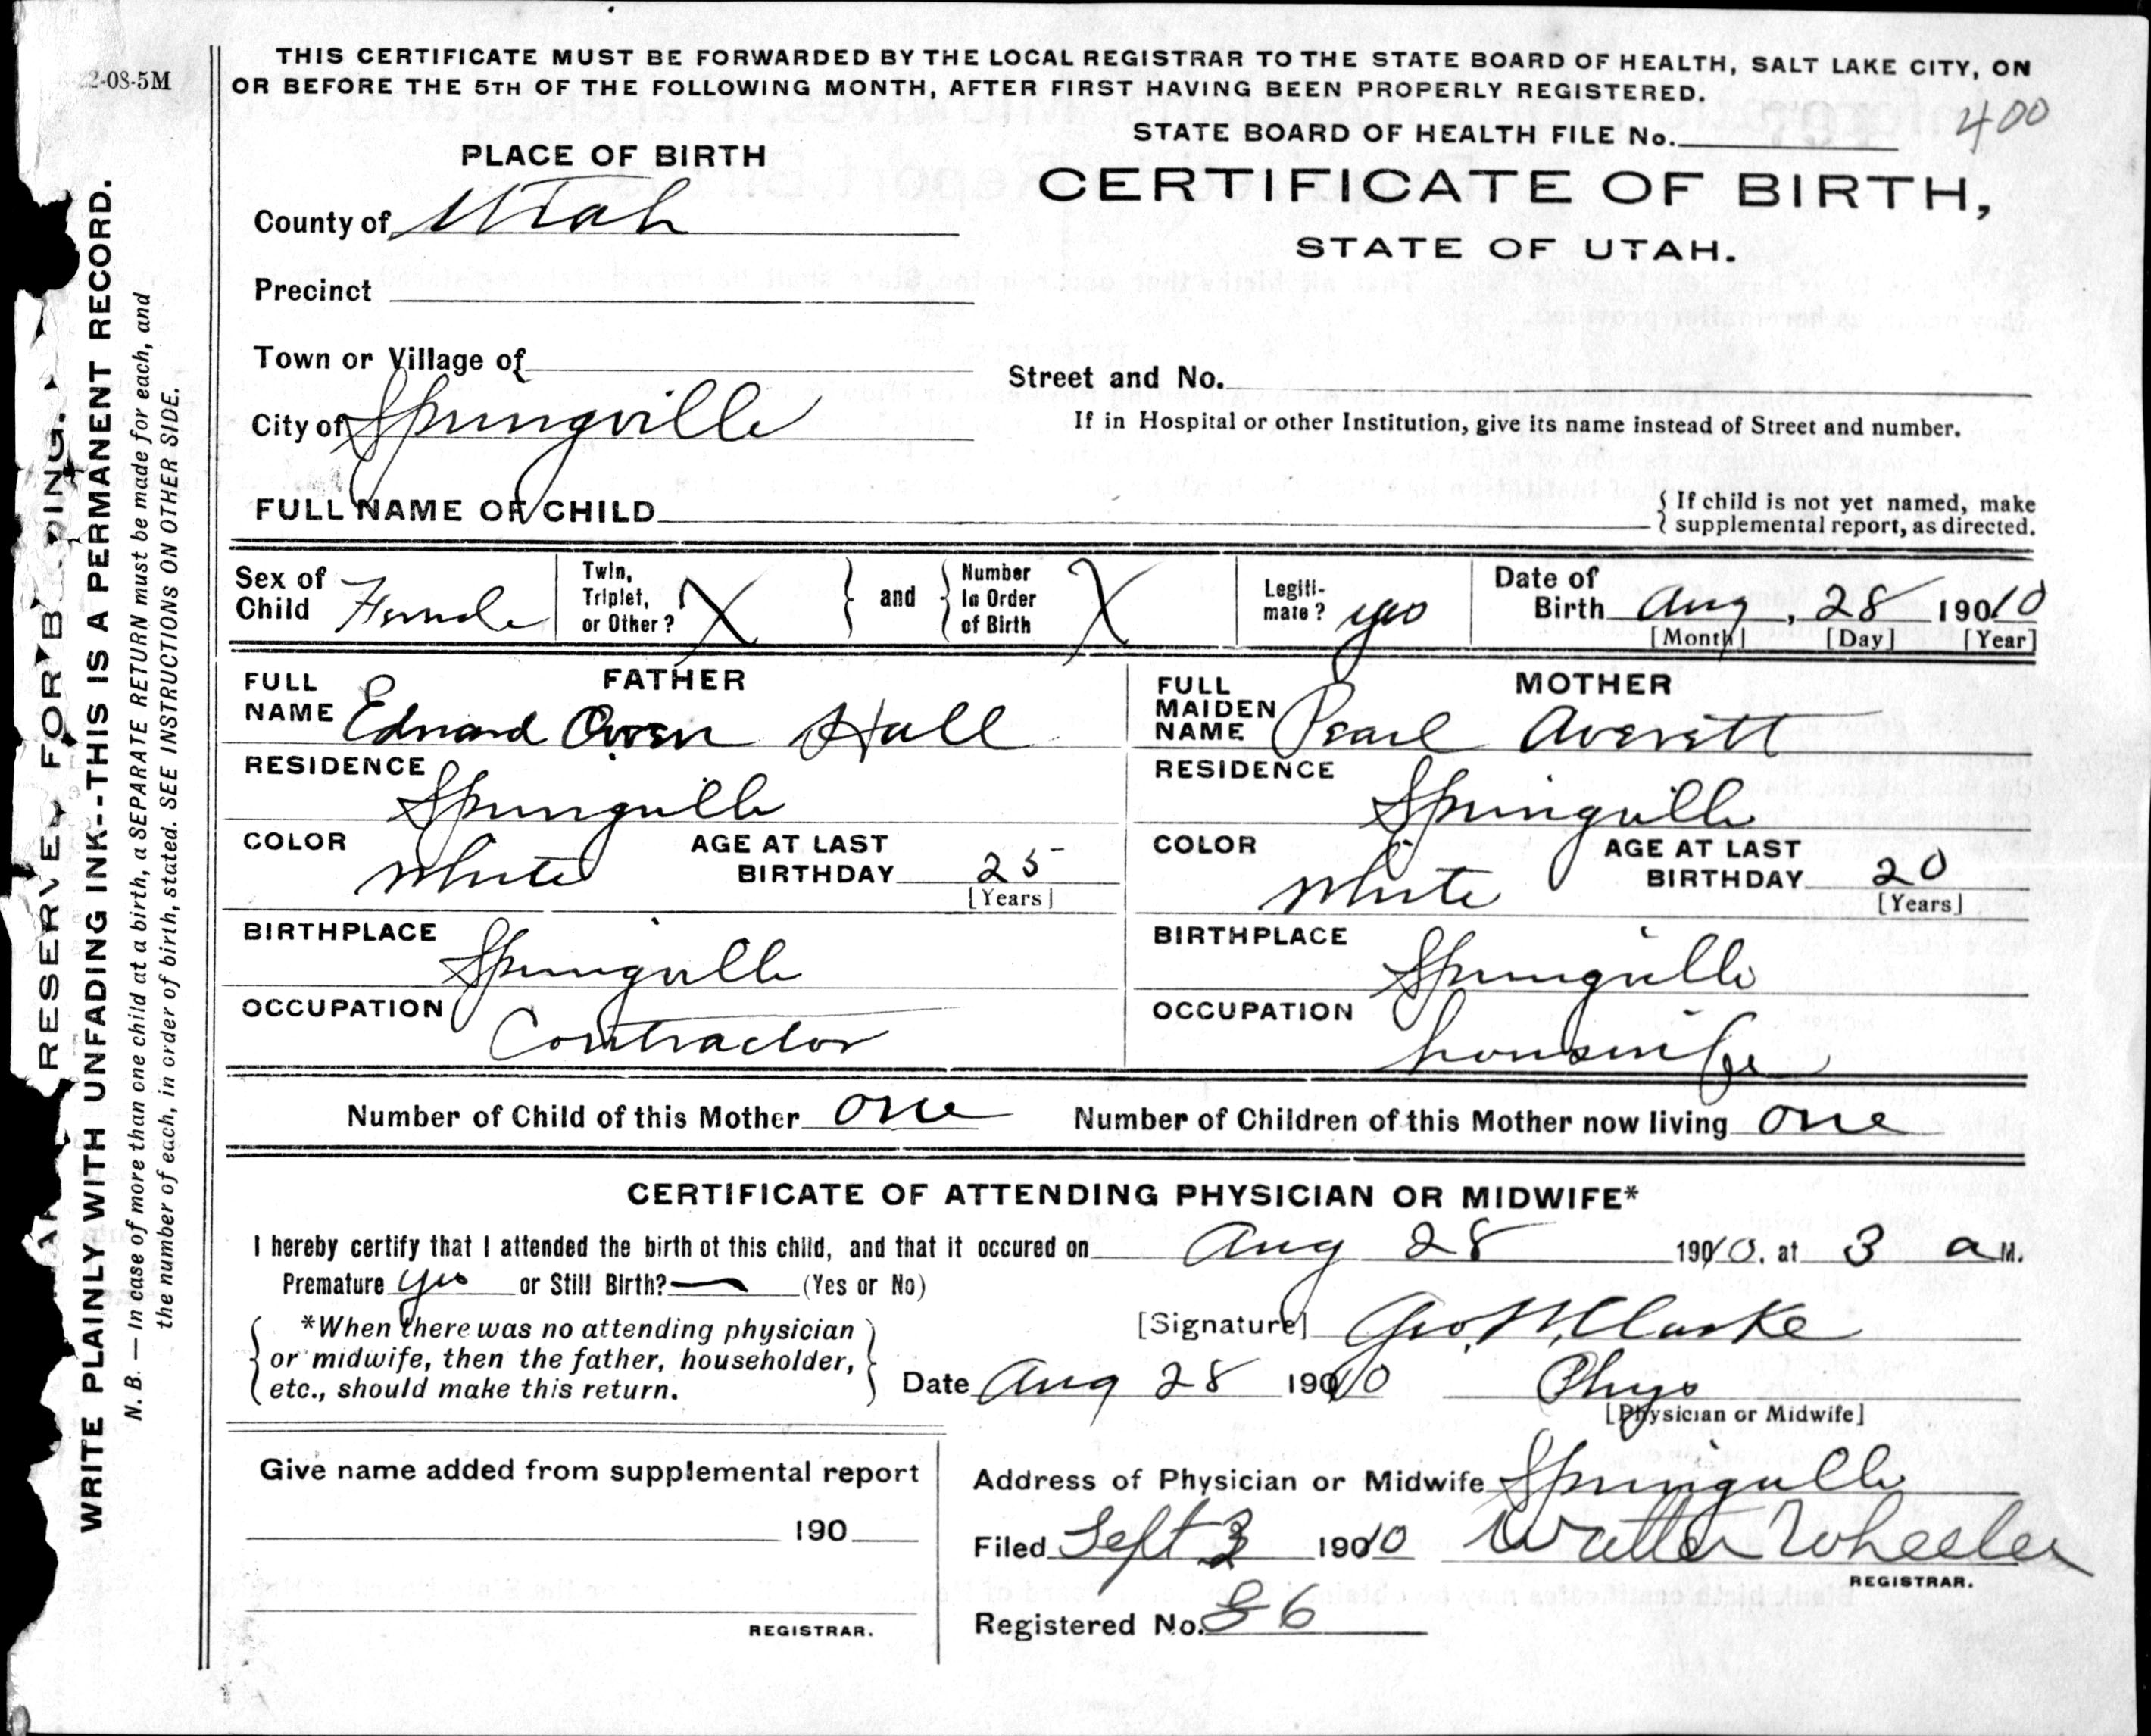 2-08-5M
THIS CERTIFICATE MUST BE FORWARDED BY THE LOCAL REGISTRAR TO THE STATE BOARD OF HEALTH, SALT LAKE CITY, ON
OR BEFORE THE 5TH OF THE FOLLOWING MONTH, AFTER FIRST HAVING BEEN PROPERLY REGISTERED.
STATE BOARD OF HEALTH FILE No. 400
CERTIFICATE OF BIRTH,
STATE OF UTAH.
PLACE OF BIRTH
County of Utah
Precinct
Town or Village of
City of Springville
Street and No.
If in Hospital or other Institution, give its name instead of Street and number.
FULL NAME OF CHILD
{ If child is not yet named, make
{ supplemental report, as directed.
Sex of Child Female
Twin, Triplet, or Other? X } and { Number In Order of Birth X
Legitimate? yes
Date of Birth Aug, 28 19010
[Month] [Day] [Year]
FATHER
FULL NAME Edward Owen Hall
RESIDENCE Springville
COLOR White AGE AT LAST BIRTHDAY 25
[Years]
BIRTHPLACE Springville
OCCUPATION Contractor
MOTHER
FULL MAIDEN NAME Pearl Averett
RESIDENCE Springville
COLOR White AGE AT LAST BIRTHDAY 20
[Years]
BIRTHPLACE Springville
OCCUPATION housewife
Number of Child of this Mother one Number of Children of this Mother now living one
CERTIFICATE OF ATTENDING PHYSICIAN OR MIDWIFE*
I hereby certify that I attended the birth of this child, and that it occured on Aug 28 19010. at 3 a M.
Premature yes or Still Birth? — (Yes or No)
*When there was no attending physician
or midwife, then the father, householder,
etc., should make this return.
[Signature] Geo. M. Clarke
Date Aug 28 19010 Phys
[Physician or Midwife]
Give name added from supplemental report
190
REGISTRAR.
Address of Physician or Midwife Springville
Filed Sept 3 19010 Walter Wheeler
REGISTRAR.
Registered No. 86
RESERVED FOR
WRITE PLAINLY WITH UNFADING INK--THIS IS A PERMANENT RECORD.
N. B. — In case of more than one child at a birth, a SEPARATE RETURN must be made for each, and
the number of each, in order of birth, stated. SEE INSTRUCTIONS ON OTHER SIDE.